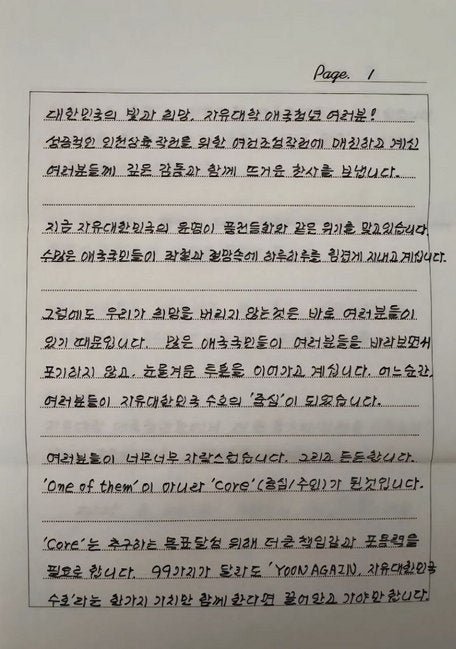 Page. 1
대한민국의 빛과 희망, 자유대학 애국청년 여러분!
성공적인 인천상륙작전을 위한 여건조성작전에 매진하고 계신
여러분들께 깊은 감동과 함께 뜨거운 찬사를 보냅니다.
지금 자유대한민국의 운명이 풍전등화와 같은 위기를 맞고있습니다.
수많은 애국국민들이 좌절과 절망속에 하루하루를 힘겹게 지내고 계십니다.
그럼에도 우리가 희망을 버리지 않는것은 바로 여러분들이
있기 때문입니다. 많은 애국국민들이 여러분들을 바라보면서
포기하지 않고, 눈물겨운 투혼을 이어가고 계십니다. 어느순간,
여러분들이 자유대한민국 수호의 '중심'이 되었습니다.
여러분들이 너무너무 자랑스럽습니다. 그리고 든든합니다.
'One of them'이 아니라 'Core'(중심/주인)가 된것입니다.
'Core'는 추구하는 목표달성 위해 더 큰 책임감과 포용력을
필요로 합니다. 99가지가 달라도 'YOON AGAIN, 자유대한민국
수호'라는 한가지 가치만 함께 한다면 끌어안고 가야만 합니다.